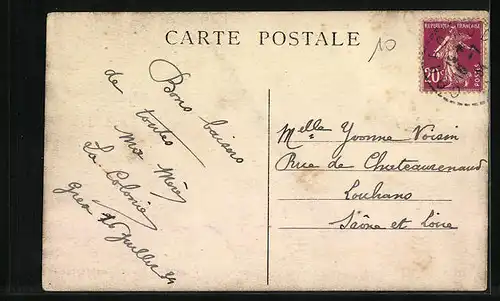 CARTE POSTALE
10
REPUBLIQUE FRANÇAISE
20c
POSTES
Bons baisers
de toutes
La Colonie
16 Juillet 34
Melle Yvonne Voisin
Rue de Chateaurenaud
Louhans
Saône et Loire